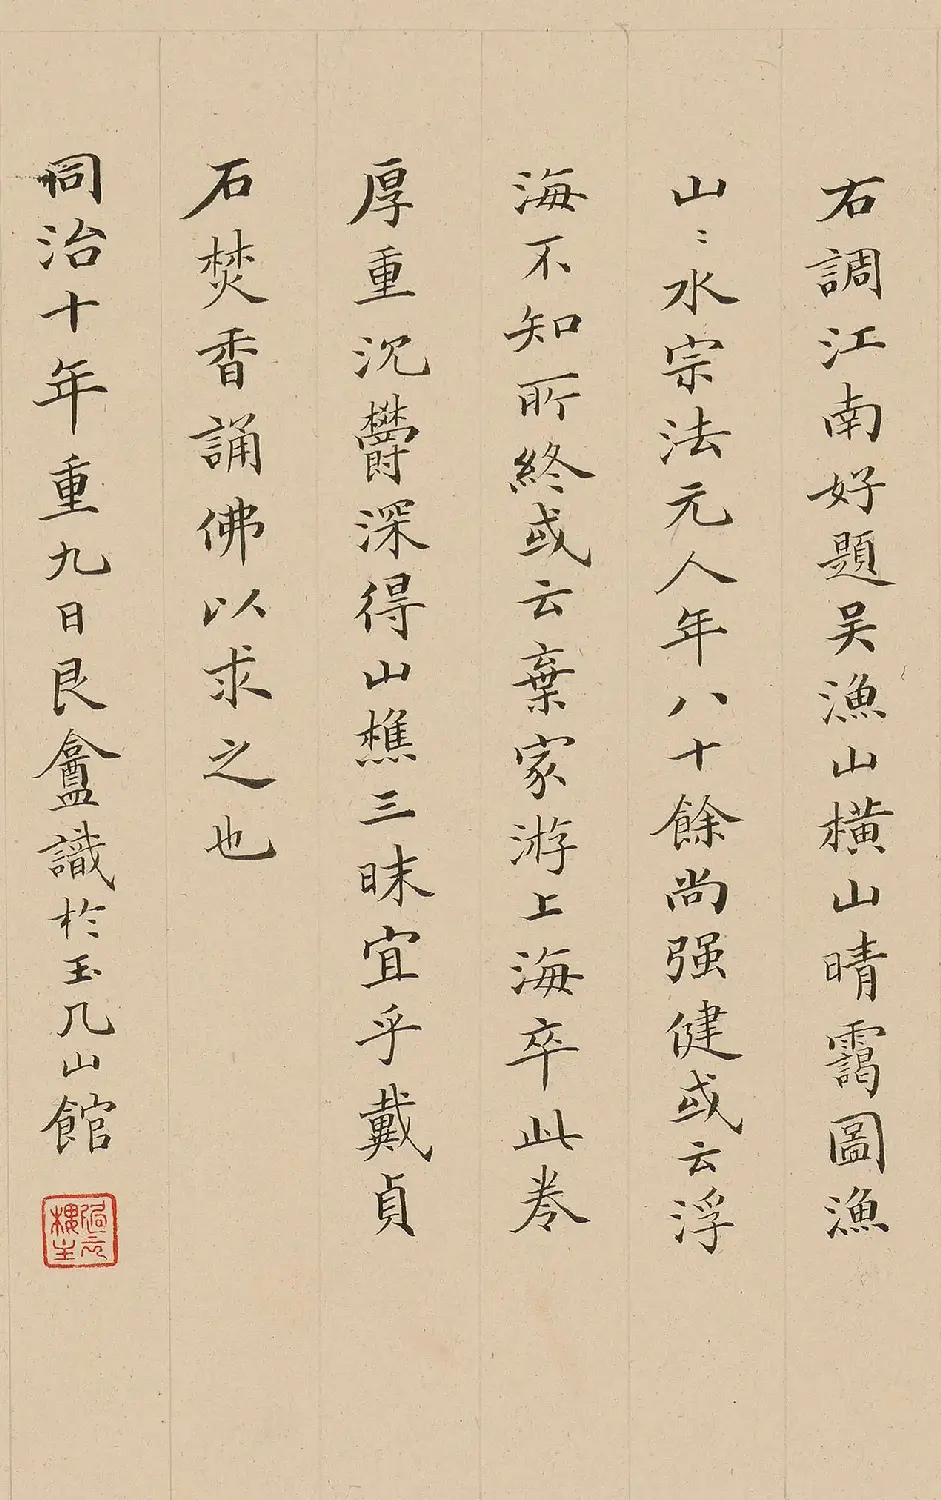 右調江南好題吴漁山橫山晴靄圖漁
山：水宗法元人年八十餘尚强健或云浮
海不知所終或云棄家游上海卒此卷
厚重沉鬱深得山樵三昧宜乎戴貞
石焚香誦佛以求之也
同治十年重九日艮盦識於玉几山館
過雲
樓主